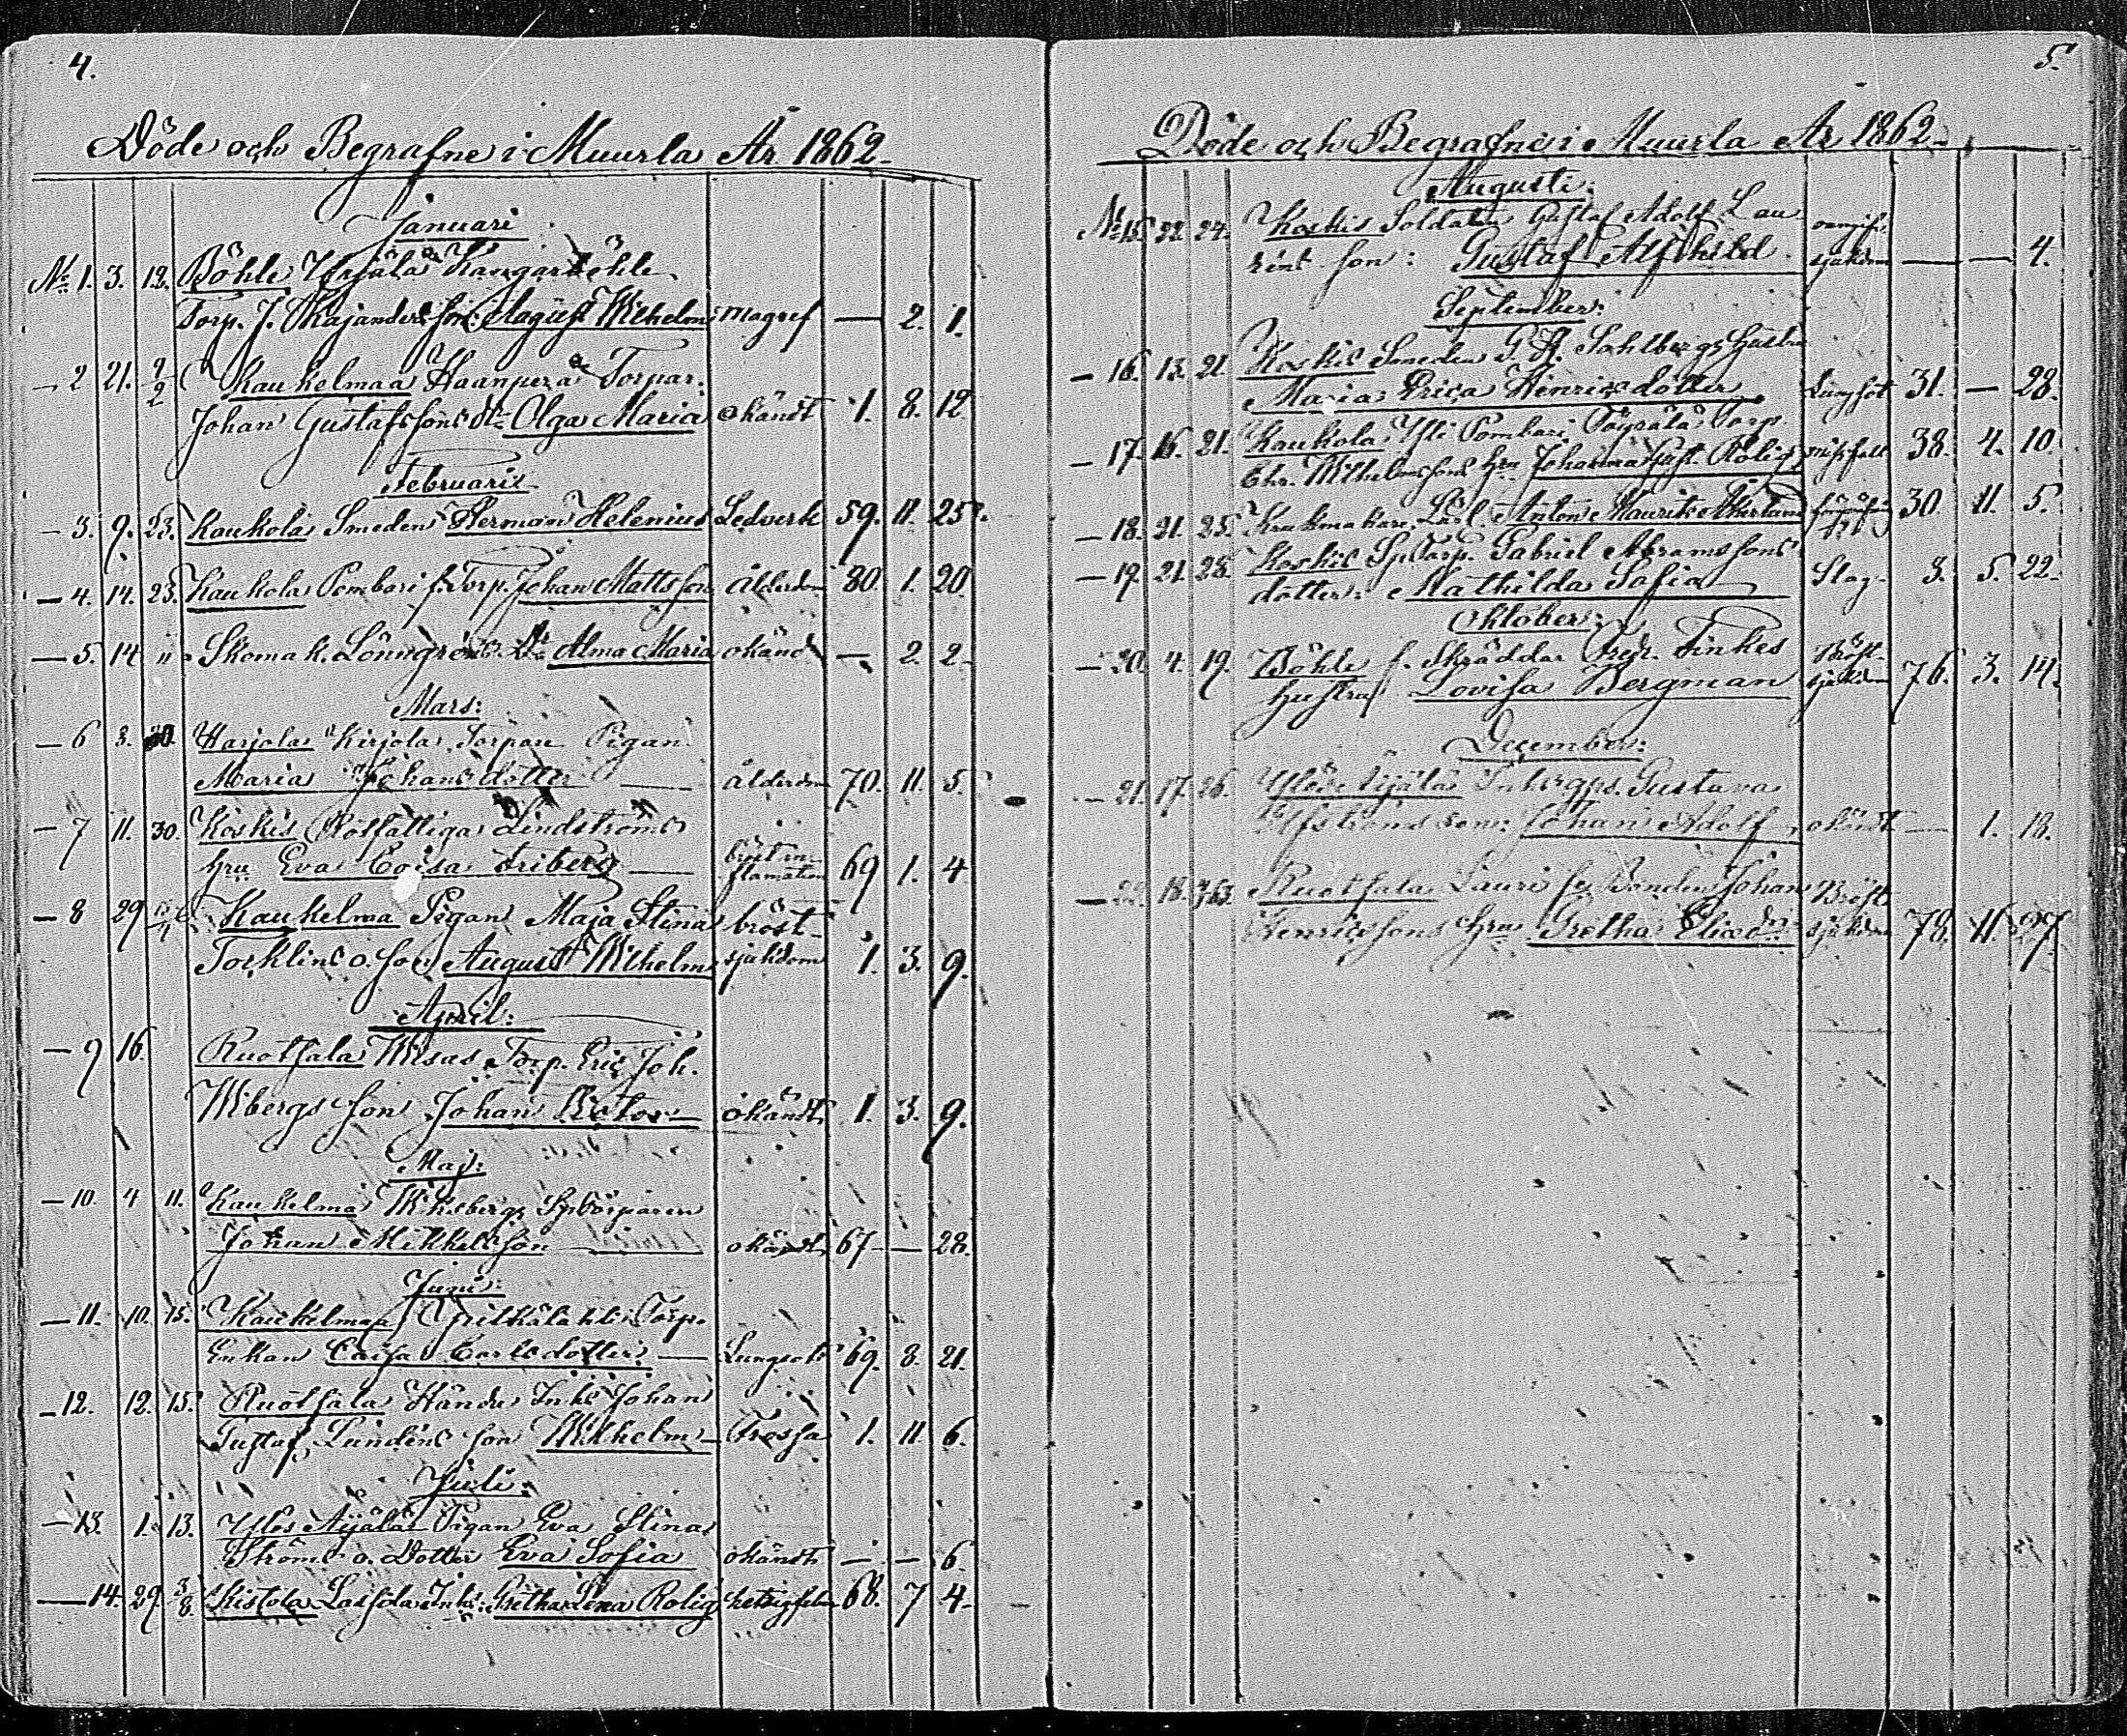 4.
Döde och Begrafne i Muurla År 1862.
Januari
No 1. 3. 12. Böhle Kangarböhle
Torp. J. Kajanders son August Wilhelm magref — 2. 1.
— 2 21. 2/2 Kaukelmaa Haanperä Torpar.
Johan Gustafssons dr Olga Maria okändt 1. 8. 12
Februari
— 3. 9. 23. Kaukola Smeden Herman Helenius Ledverk 59. 11. 25.
— 4. 14. 23. Kaukola Pombari f. Torp. Johan Mattsson Ålderdom 80. 1. 20
— 5. 14 " Skomak. Lönngrens Dr Alma Maria okänd — 2. 2.
Mars:
— 6 3. 30. Harjola Kirjola Torpare Pigan
Maria Johansdotter — ålderdom 70. 11. 5.
— 7 11. 30. Koskis Rotfattiga Lindströms
hru Eva Caisa Friberg — bröst in-
flamation 69 1. 4
— 8 29 Kaukelma Pigan Maja Stina bröst-
Torklins o. son August Wilhelm sjukdom 1. 3. 9.
April:
— 9 16. Ruotsala Wisas Torp. Eric Joh.
Wibergs son Johan Victor — okändt 1. 3. 9.
Maj:
— 10. 4 11. Kaukelma Wiksberg Sptorparen
Johan Mikkelsson — okändt 67 — 28.
Juni:
— 11. 10. 15. Kaukelmaa Torp.
Enkan Caisa Carlsdotter — Lungsot 69. 8. 21.
— 12. 12. 15. Ruotsala Händä Inhs Johan
Gustaf Lundens son Wilhelm — Frossa 1. 11 6.
Juli:
— 13. 1. 13. Ylös Äijälä Pigan Eva Stina
Ströms o. Dotter Eva Sofia okändt — — 6.
— 14. 29. 3/8. Kistola Lassila Inhs: Gretha Lena Rolig hetsigfeber 68. 7 4.
5.
Döde och Begrafne i Muurla År 1862.
Augusti:
No 15. 22. 24. Koskis Soldaten Gustaf Adolf Lau
rins son: Gustaf Alfshild sjukdom — — 4.
September:
— 16. 13. 21. Koskis Smeden G. A. Sahlbergs hustru
Maria Erica Henricsdotter Lungsot 31. — 28.
— 17. 16. 21. Kaukola Yli Pombari Töyrälä Torp.
Chr. Wilhelmssons hru Johanna Gust. Rolig missfall 38. 4. 10.
— 18. 21. 25. Krukmakare Lärl. Anton Maurits 30 11. 5.
— 19. 21. 28. Koskis SpTorp. Gabriel Abramssons
dotter: Mathilda Sofia Slag. 3. 5. 22.
Oktober:
— 20. 4. 19. Böhle f. Skräddar Fredr. Finkes Bröst-
hustru Lovisa Bergman sjukdom 76. 3. 14.
December:
— 21. 17. 26. Ylös Äijälä Gustava
Elfströms son: Johan Adolf okändt — 1. 18.
— 22. 18. Ruotsala Lauri f. Bonden Johan Bröst
Henricssons hru Gretha Eliædr sjukdom 78. 11. 27.